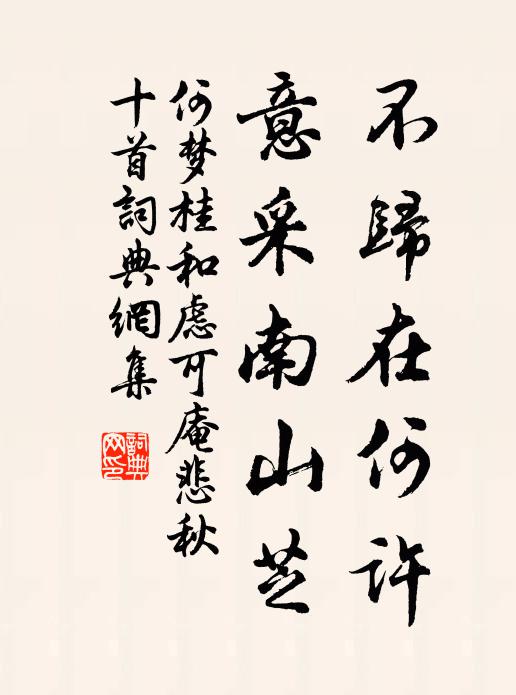 不歸在何許
意采南山芝
何梦桂和慮可庵悲秋
十首詞典網集
詞典网印